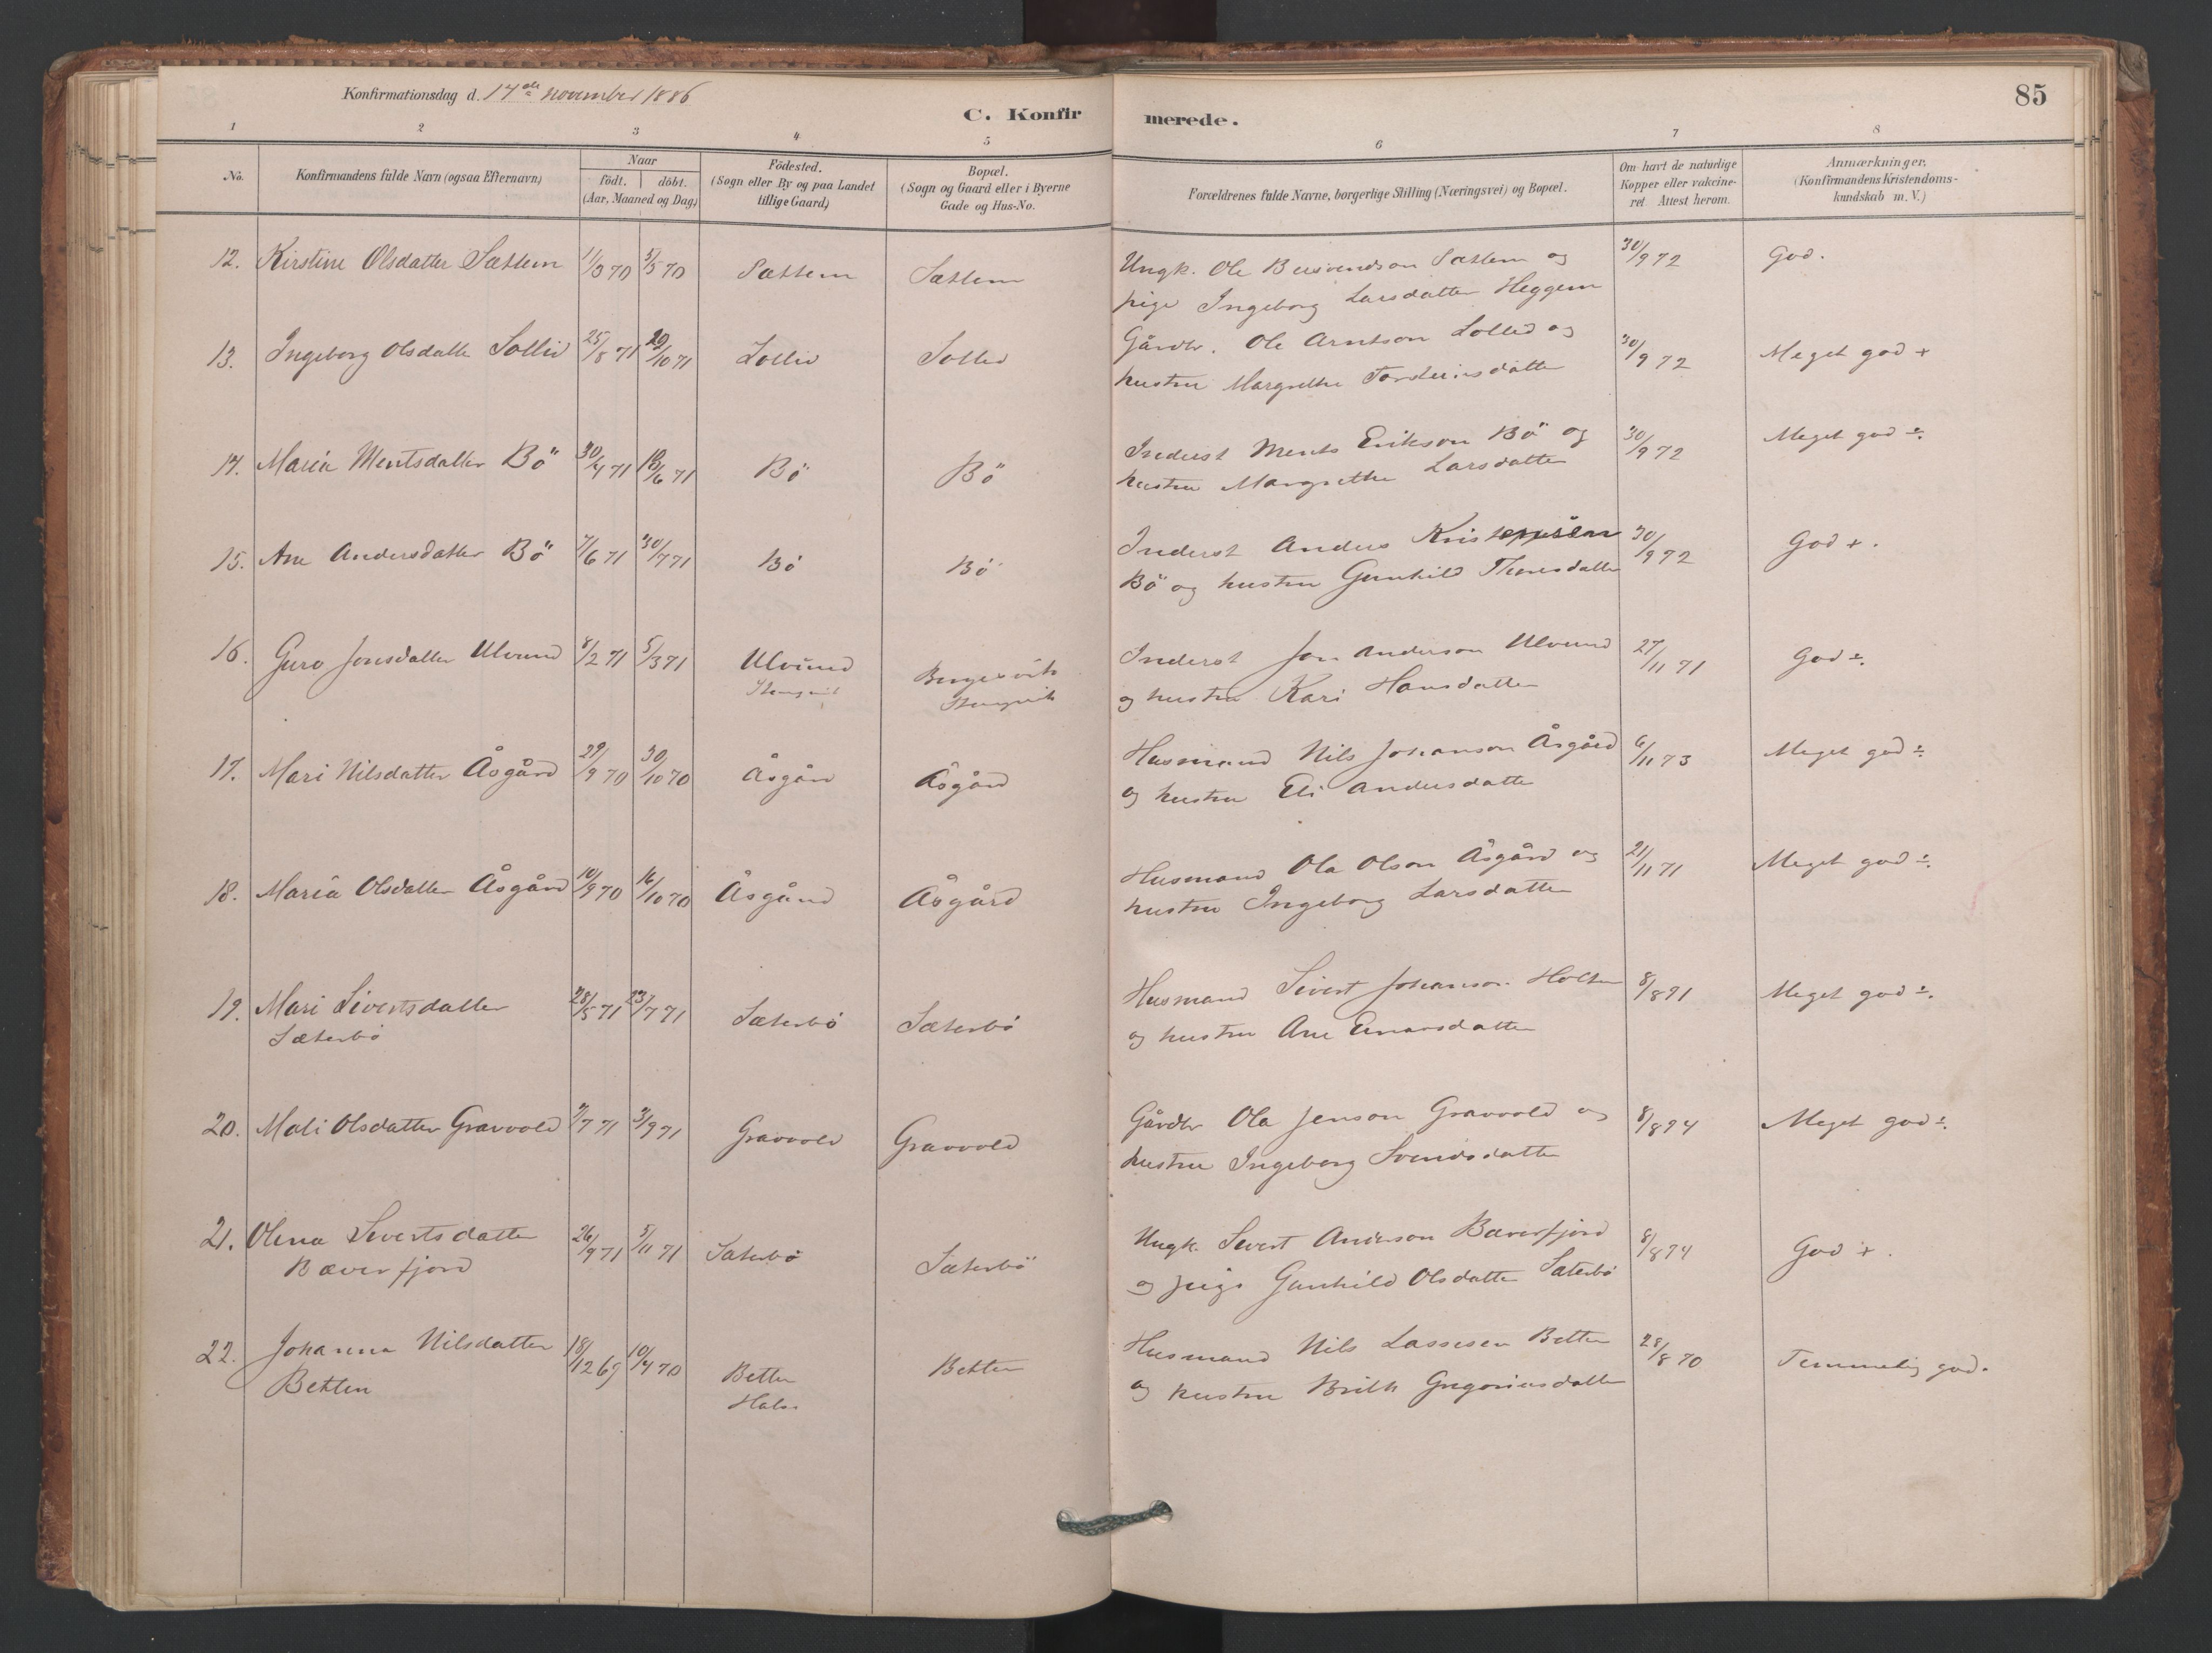 Konfirmationsdag d. 14de November 1886
C. Konfirmerede.
85
1 2 3 4 5 6 7 8
No.
Konfirmandens fulde Navn (ogsaa Efternavn)
Naar
födt. | döbt.
(Aar, Maaned og Dag)
Födested.
(Sogn eller By og paa Landet
tillige Gaard)
Bopæl.
(Sogn og Gaard eller i Byerne
Gade og Hus-No.
Forældrenes fulde Navne, borgerlige Stilling (Næringsvei) og Bopæl.
Om havt de naturlige
Kopper eller vakcine-
ret Attest herom.
Anmærkninger.
(Konfirmandens Kristendoms-
kundskab m. V.)
12. Kirstine Olsdatter Sættem 11/3 70 5/5 70 Sættem Sættem Ungk. Ole Sættem og 30/9 72 God.
pige Ingeborg Larsdatter Heggem
13. Ingeborg Olsdatte Sollid 25/8 71 29/10 71 Sollid Sollid Gårdbr. Ole Arntson Sollid og 30/9 72 Meget god +
hustru Margrethe
14. Maria Mentsdatter Bö 30/4 71 18/6 71 Bö Bö Inderst Ments Erikson Bö og 30/9 72 Meget god ÷.
hustru Margrethe Larsdatter
15. Ane Andersdatter Bö 7/6 71 30/7 71 Bö Bö Inderst Anders 30/9 72 God +.
Bö og hustru Gunhild
16. Guro Jonsdatter Ulvund 8/2 71 5/3 71 Ulvund Inderst Jon Anderson Ulvund 27/11 71 God ÷.
og hustru Kari Hansdatter
17. Mari Nilsdatter Åsgård 29/9 70 30/10 70 Åsgård Åsgård Husmand Nils Johanson Åsgård 6/11 73 Meget god ÷
og hustru Eli Andersdatte
18. Maria Olsdatter Åsgård 10/9 70 16/10 70 Åsgård Åsgård Husmand Ola Olson Åsgård og 21/11 71 Meget god ÷.
hustru Ingeborg Larsdatter
19. Mari Sivertsdatter 28/5 71 23/7 71 Sæterbö Sæterbö Husmand Sivert Johanson Holten Meget god ÷.
Sæterbö
og hustru Ane Einarsdatter
20. Mali Olsdatter Gravvold 3/9 71 Gravvold Gravvold Gårdbr Ola Jenson Gravvold og 8/8 74 Meget god ÷.
hustru Ingeborg Svendsdatter
21. Olena Sivertsdatter 26/9 71 5/11 71 Sæterbö Sæterbö Ungk. Sivert Anderson Bæverfjord 8/8 74 God +.
Bæverfjord
og pige Gunhild Olsdatter Sæterbö
22. Johanna Nilsdatter 18/12 69 10/4 70 Betten Betten Husmand Nils Lassesen Betten 28/8 70 Temmelig god.
Betten
Halse
og hustru Brith Gregoriusdatter